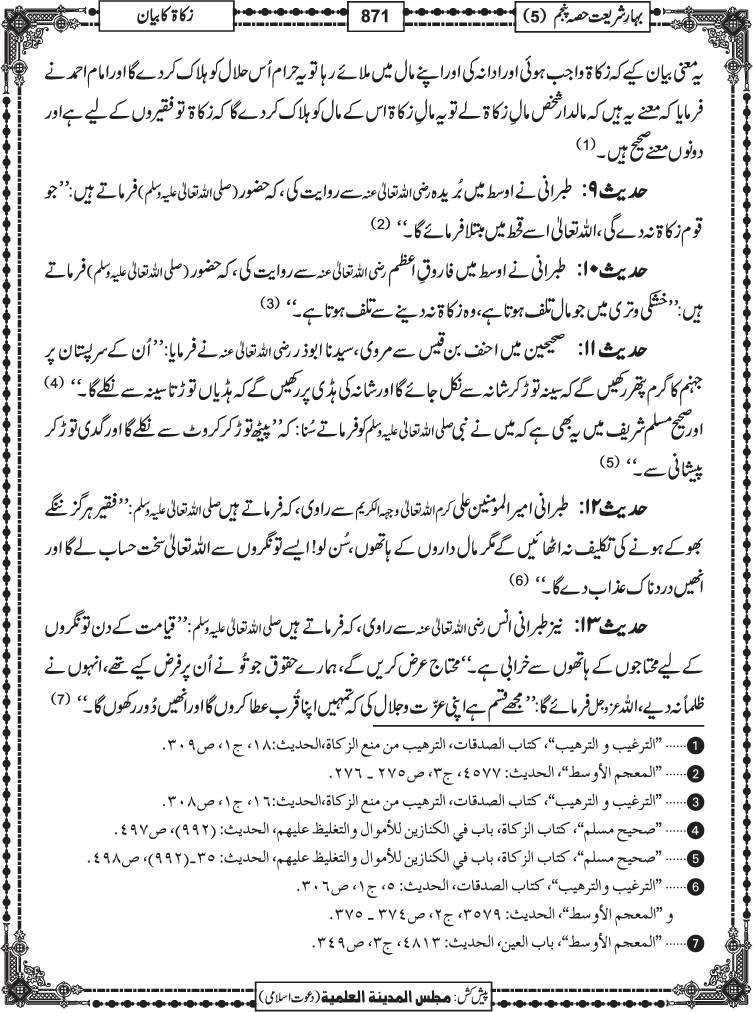 بہارِ شریعت حصہ پنجم (5)
871
زکاۃ کا بیان
یہ معنی بیان کیے کہ زکاۃ واجب ہوئی اور ادا نہ کی اور اپنے مال میں ملائے رہا تو یہ حرام اُس حلال کو ہلاک کر دے گا اور امام احمد نے
فرمایا کہ معنے یہ ہیں کہ مالدار شخص مالِ زکاۃ لے تو یہ مالِ زکاۃ اس کے مال کو ہلاک کر دے گا کہ زکاۃ تو فقیروں کے لیے ہے اور
دونوں معنے صحیح ہیں۔ (1)
حدیث ۹: طبرانی نے اوسط میں بُریدہ رضی اللہ تعالیٰ عنہ سے روایت کی، کہ حضور (صلی اللہ تعالیٰ علیہ وسلم) فرماتے ہیں: ’’جو
قوم زکاۃ نہ دے گی، اللہ تعالیٰ اسے قحط میں مبتلا فرمائے گا۔‘‘ (2)
حدیث ۱۰: طبرانی نے اوسط میں فاروقِ اعظم رضی اللہ تعالیٰ عنہ سے روایت کی، کہ حضور (صلی اللہ تعالیٰ علیہ وسلم) فرماتے
ہیں: ’’خشکی و تری میں جو مال تلف ہوتا ہے، وہ زکاۃ نہ دینے سے تلف ہوتا ہے۔‘‘ (3)
حدیث ۱۱: صحیحین میں احنف بن قیس سے مروی، سیدنا ابوذر رضی اللہ تعالیٰ عنہ نے فرمایا: ’’اُن کے سرِ پستان پر
جہنم کا گرم پتھر رکھیں گے کہ سینہ توڑ کر شانہ سے نکل جائے گا اور شانہ کی ہڈی پر رکھیں گے کہ ہڈیاں توڑتا سینہ سے نکلے گا۔‘‘ (4)
اور صحیح مسلم شریف میں یہ بھی ہے کہ میں نے نبی صلی اللہ تعالیٰ علیہ وسلم کو فرماتے سُنا: کہ ’’پیٹھ توڑ کر کروٹ سے نکلے گا اور گدی توڑ کر
پیشانی سے۔‘‘ (5)
حدیث ۱۲: طبرانی امیر المومنین علی کرم اللہ تعالیٰ وجہہ الکریم سے راوی، کہ فرماتے ہیں صلی اللہ تعالیٰ علیہ وسلم: ’’فقیر ہرگز ننگے
بھوکے ہونے کی تکلیف نہ اٹھائیں گے مگر مال داروں کے ہاتھوں، سُن لو! ایسے تونگروں سے اللہ تعالیٰ سخت حساب لے گا اور
انھیں دردناک عذاب دے گا۔‘‘ (6)
حدیث ۱۳: نیز طبرانی انس رضی اللہ تعالیٰ عنہ سے راوی، کہ فرماتے ہیں صلی اللہ تعالیٰ علیہ وسلم: ’’قیامت کے دن تونگروں
کے لیے محتاجوں کے ہاتھوں سے خرابی ہے۔‘‘ محتاج عرض کریں گے، ہمارے حقوق جو تُو نے اُن پر فرض کیے تھے، انہوں نے
ظلماً نہ دیے، اللہ عزوجل فرمائے گا: ’’مجھے قسم ہے اپنی عزّت و جلال کی کہ تمہیں اپنا قُرب عطا کروں گا اور انھیں دُور رکھوں گا۔‘‘ (7)
1 ...... ”الترغيب و الترهيب“، كتاب الصدقات، الترهيب من منع الزكاة،الحديث:١٨، ج١، ص٣٠٩.
2 ...... ”المعجم الأوسط“، الحديث: ٤٥٧٧، ج٣، ص٢٧٥ ـ ٢٧٦.
3 ...... ”الترغيب و الترهيب“، كتاب الصدقات، الترهيب من منع الزكاة،الحديث:١٦، ج١، ص٣٠٨.
4 ...... ”صحيح مسلم“، كتاب الزكاة، باب في الكنازين للأموال والتغليظ عليهم، الحديث: (٩٩٢)، ص٤٩٧.
5 ...... ”صحيح مسلم“، كتاب الزكاة، باب في الكنازين للأموال والتغليظ عليهم، الحديث: ٣٥ـ(٩٩٢)، ص٤٩٨.
6 ...... ”الترغيب والترهيب“، كتاب الصدقات، الحديث: ٥، ج١، ص٣٠٦.
و ”المعجم الأوسط“، الحديث: ٣٥٧٩، ج٢، ص٣٧٤ ـ ٣٧٥.
7 ...... ”المعجم الأوسط“، باب العين، الحديث: ٤٨١٣، ج٣، ص٣٤٩.
پیش کش: مجلس المدينة العلمية (دعوت اسلامی)